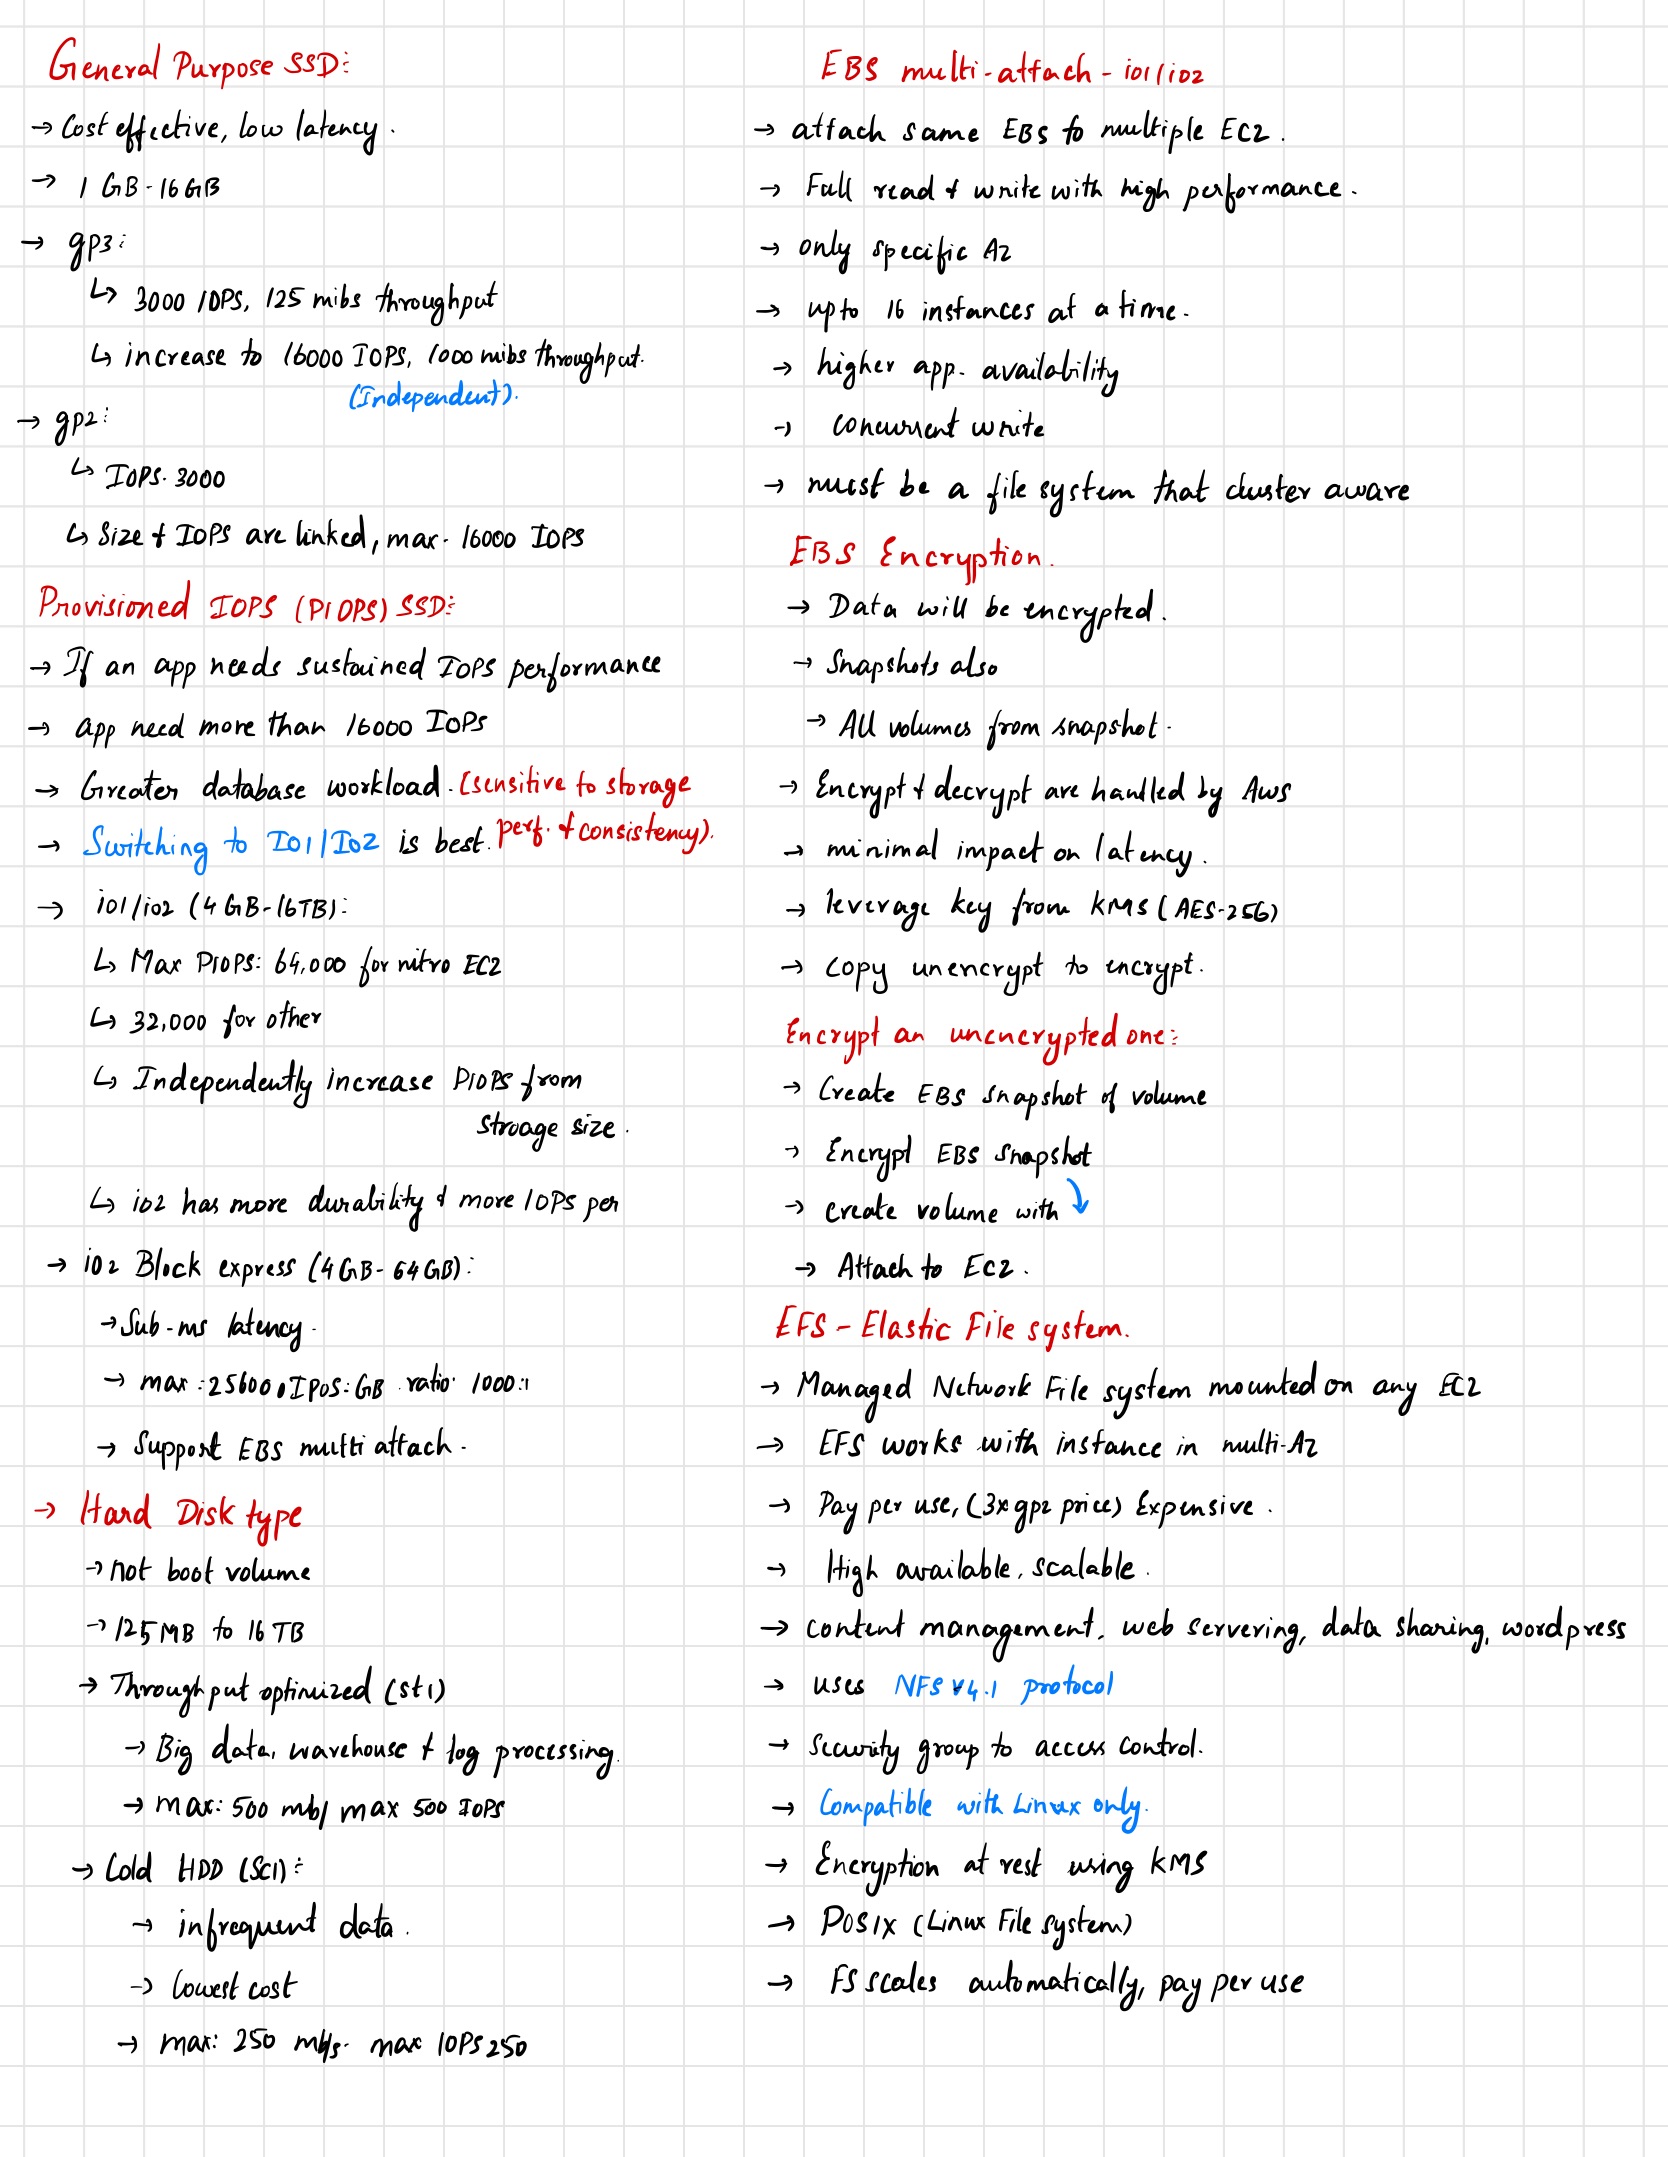 General Purpose SSD:
→ Cost effective, low latency.
→ 1 GB - 16 GB
→ gp3:
↳ 3000 IOPS, 125 mibs throughput
↳ increase to 16000 IOPS, 1000 mibs throughput.
(Independent).
→ gp2:
↳ IOPS. 3000
↳ Size & IOPS are linked, max. 16000 IOPS
Provisioned IOPS (PIOPS) SSD:
→ If an app needs sustained IOPS performance
→ app need more than 16000 IOPS
→ Greater database workload. (sensitive to storage
perf. & consistency).
→ Switching to IO1/IO2 is best.
→ io1/io2 (4 GB-16TB):
↳ Max PIOPS: 64,000 for nitro EC2
↳ 32,000 for other
↳ Independently increase PIOPS from
stroage size.
↳ io2 has more durability & more IOPS per
→ io2 Block express (4GB-64GB):
→ Sub-ms latency.
→ max: 256000 IPOS:GB ratio 1000:1
→ Support EBS multi attach.
→ Hard Disk type
→ not boot volume
→ 125 MB to 16 TB
→ Throughput optimized (st1)
→ Big data, warehouse & log processing.
→ max: 500 mb/ max 500 IOPS
→ Cold HDD (SC1):
→ infrequent data.
→ lowest cost
→ max: 250 mb/s. max IOPS 250
EBS multi-attach - io1/io2
→ attach same EBS to multiple EC2.
→ Full read & write with high performance.
→ only specific AZ
→ upto 16 instances at a time.
→ higher app. availability
→ concurrent write
→ must be a file system that cluster aware
EBS Encryption.
→ Data will be encrypted.
→ Snapshots also
→ All volumes from snapshot.
→ Encrypt & decrypt are handled by AWS
→ minimal impact on latency.
→ leverage key from KMS (AES-256)
→ copy unencrypt to encrypt.
Encrypt an unencrypted one:
→ Create EBS snapshot of volume
→ Encrypt EBS snapshot
→ create volume with ↓
→ Attach to EC2.
EFS - Elastic File system.
→ Managed Network File system mounted on any EC2
→ EFS works with instance in multi-AZ
→ Pay per use, (3x gp2 price) Expensive.
→ High available, scalable.
→ content management, web servering, data sharing, wordpress
→ uses NFS v4.1 protocol
→ Security group to access control.
→ Compatible with Linux only.
→ Encryption at rest using KMS
→ POSIX (Linux File system)
→ FS scales automatically, pay per use